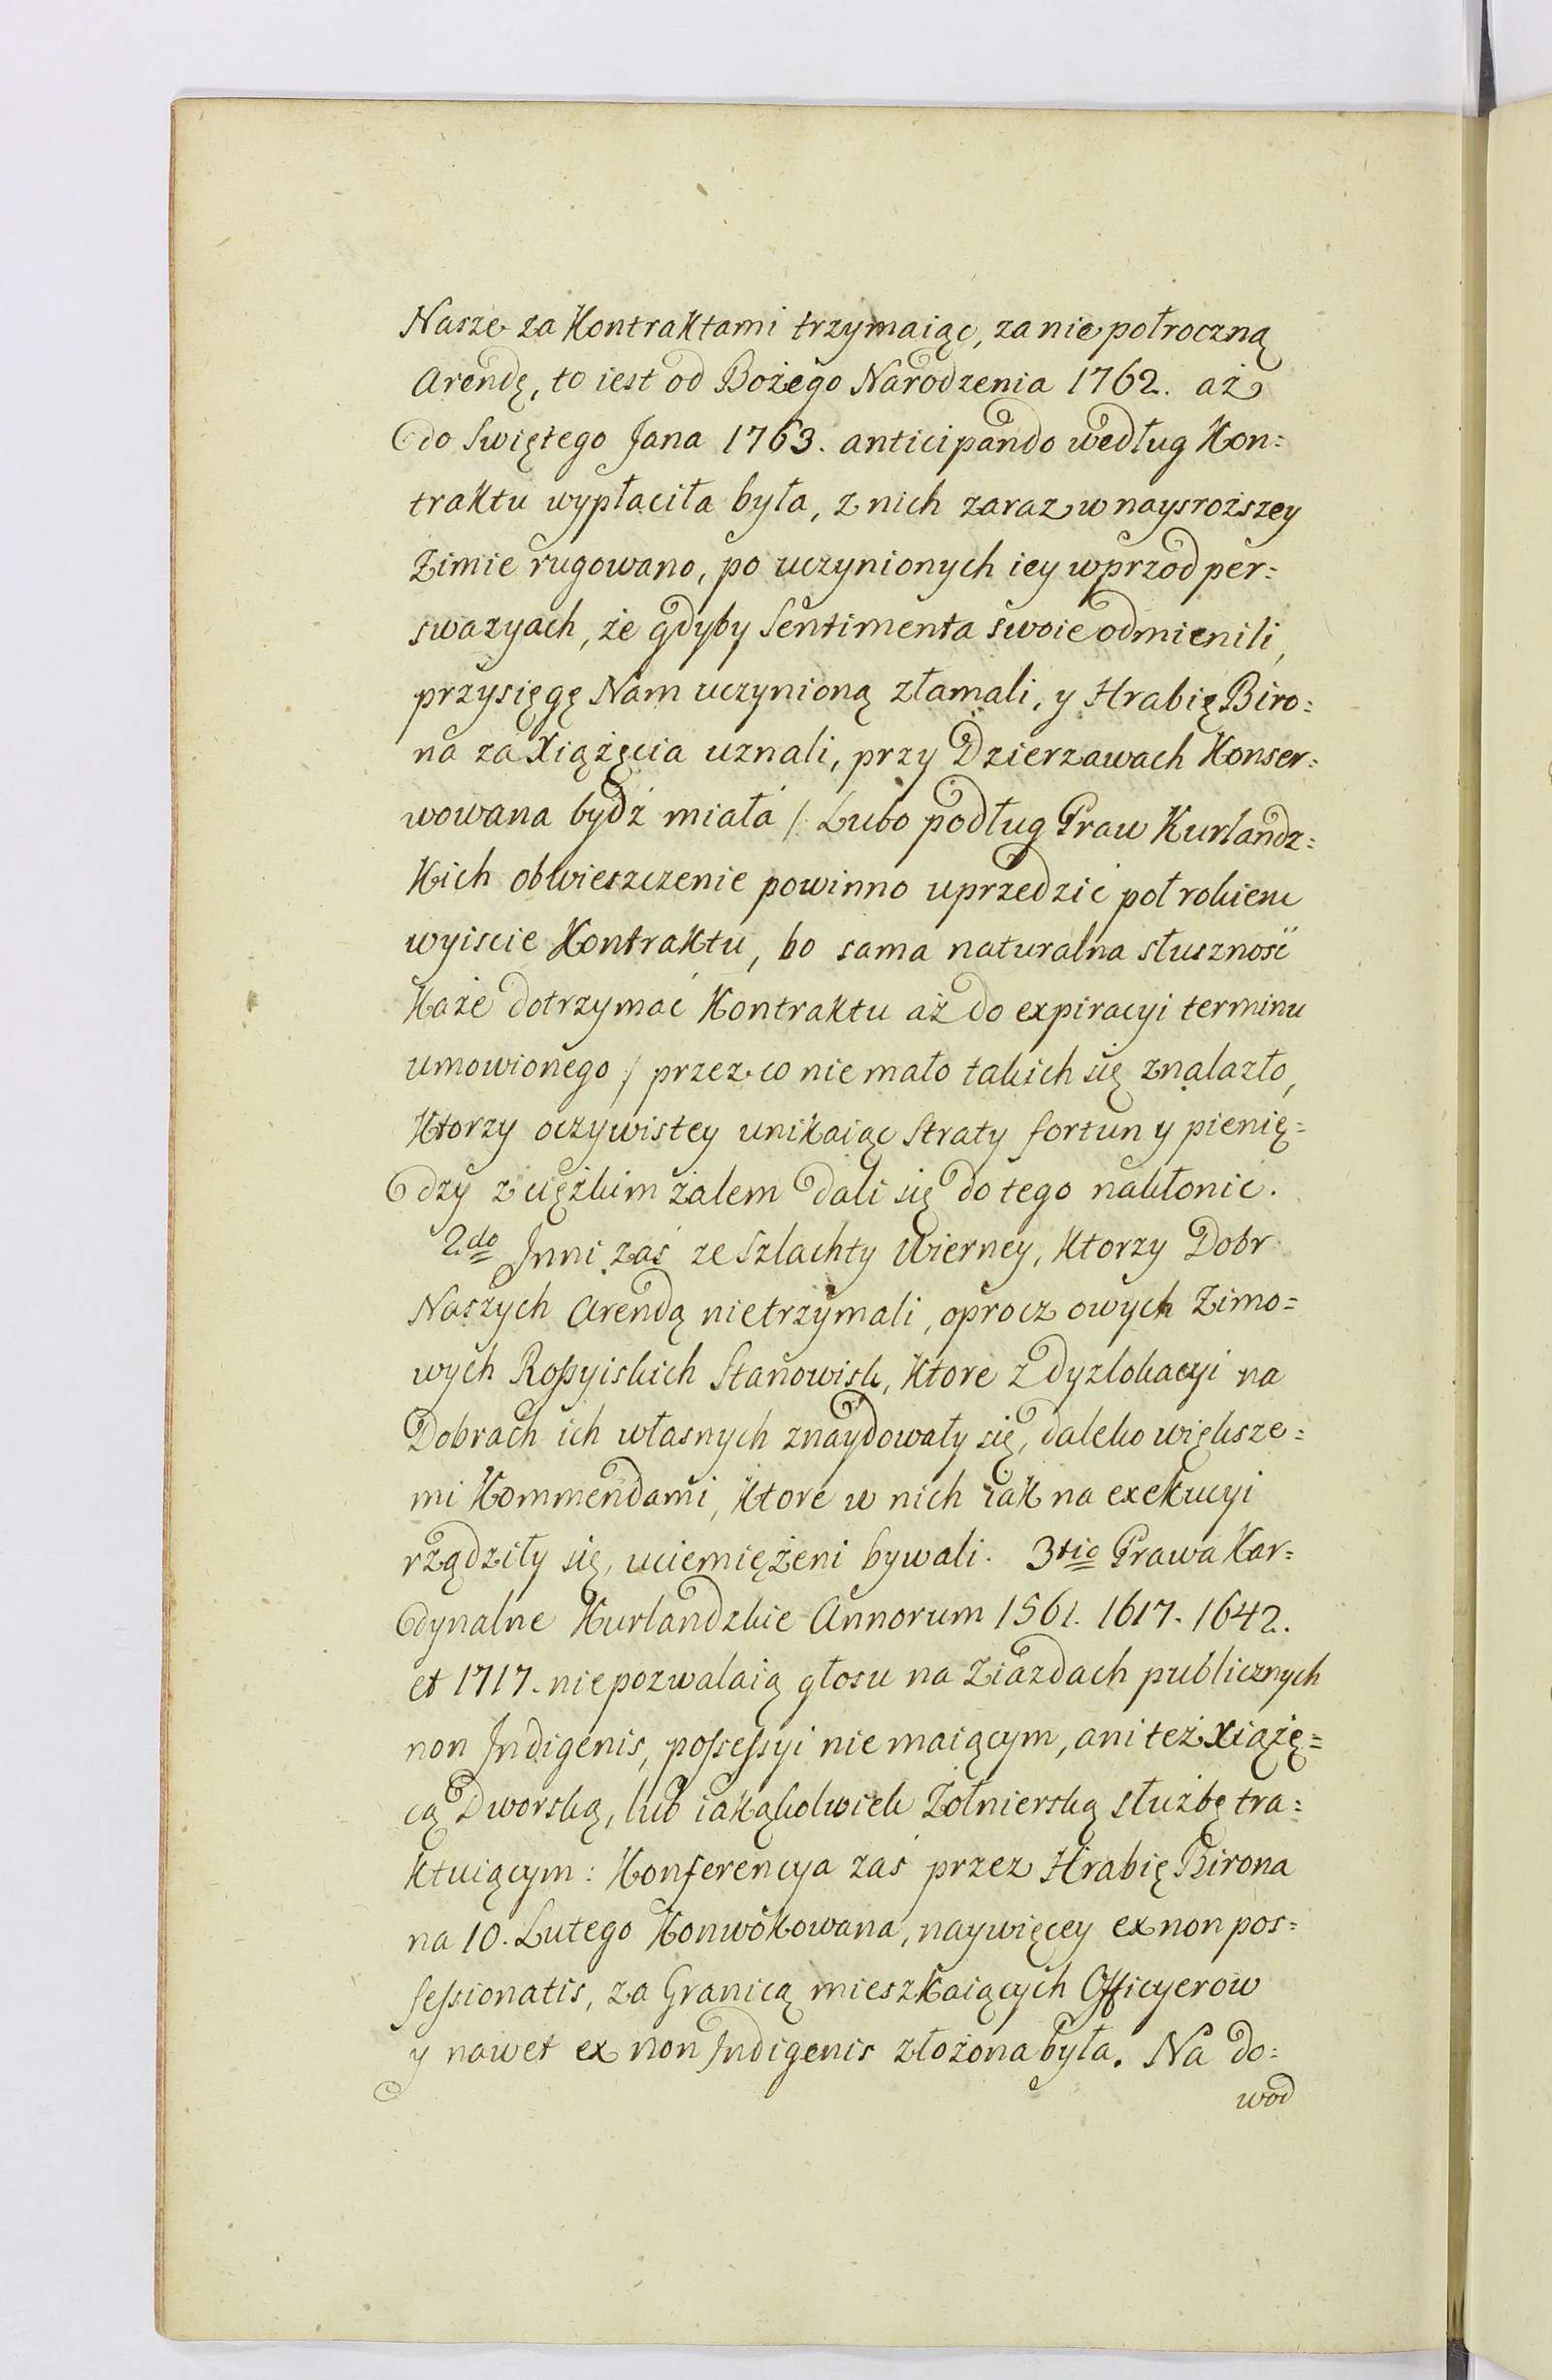 Nasze za Kontraktami trzymaiąc, za nie połroczną
Arendę, to iest od Bożego Narodzenia 1762. aż
do Swiętego Jana 1763. anticipando według Kon=
traktu wypłaciła była, z nich zaraz w naysroższey
Zimie rugowano, po uczynionych iey wprzod per=
swazyach, że gdyby Sentimenta swoie odmienili,
przysięgę Nam uczynioną złamali, y Hrabię Biro=
na za Xiążęcia uznali, przy Dzierzawach Konser=
wowana bydź miała / Lubo podług Praw Kurlandz=
kich obwieszczenie powinno uprzedzić poł rokiem
wyiscie Kontraktu, bo sama naturalna słusznosć
każe dotrzymać Kontraktu aż do expiracyi terminu
umowionego / przez co nie mało takich się znalazło,
ktorzy oczywistey unikaiąc Straty fortun y pienię=
dzy z ciężkim żalem dali się do tego nakłonić.
2do Inni zaś ze Szlachty wierney, ktorzy Dobr
Naszych Arendą nietrzymali, oprocz owych Zimo=
wych Rossyiskich Stanowisk, ktore z dyzlokacyi na
Dobrach ich własnych znaydowały się, daleko większe=
mi Kommendami, ktore w nich iak na exekucyi
rządziły się, uciemiężeni bywali. 3tio Prawa Kar=
dynalne Kurlandzkie Annorum 1561. 1617. 1642.
et 1717. niepozwalaią głosu na Ziazdach publicznych
non Indigenis, possessyi nie maiącym, ani też Xiążę=
cą Dworską, lub iakąkolwiek Żołnierską służbę tra=
ktuiącym: Konferencya zaś przez Hrabię Birona
na 10. Lutego Konwokowana, naywięcey ex non pos=
sessionatis, za Granicą mieszkaiących Officyerow
y nawet ex non Indigenis złożona była. Na do=
wod